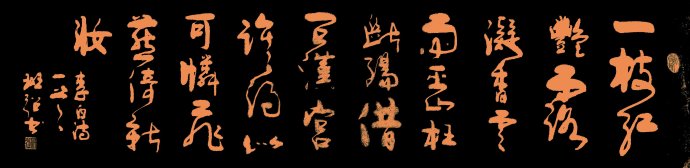 一枝紅
艷露
凝香雲
雨巫山枉
斷腸借
問漢宮
誰得似
可憐飛
燕倚新
妝
李白詩
一首
書